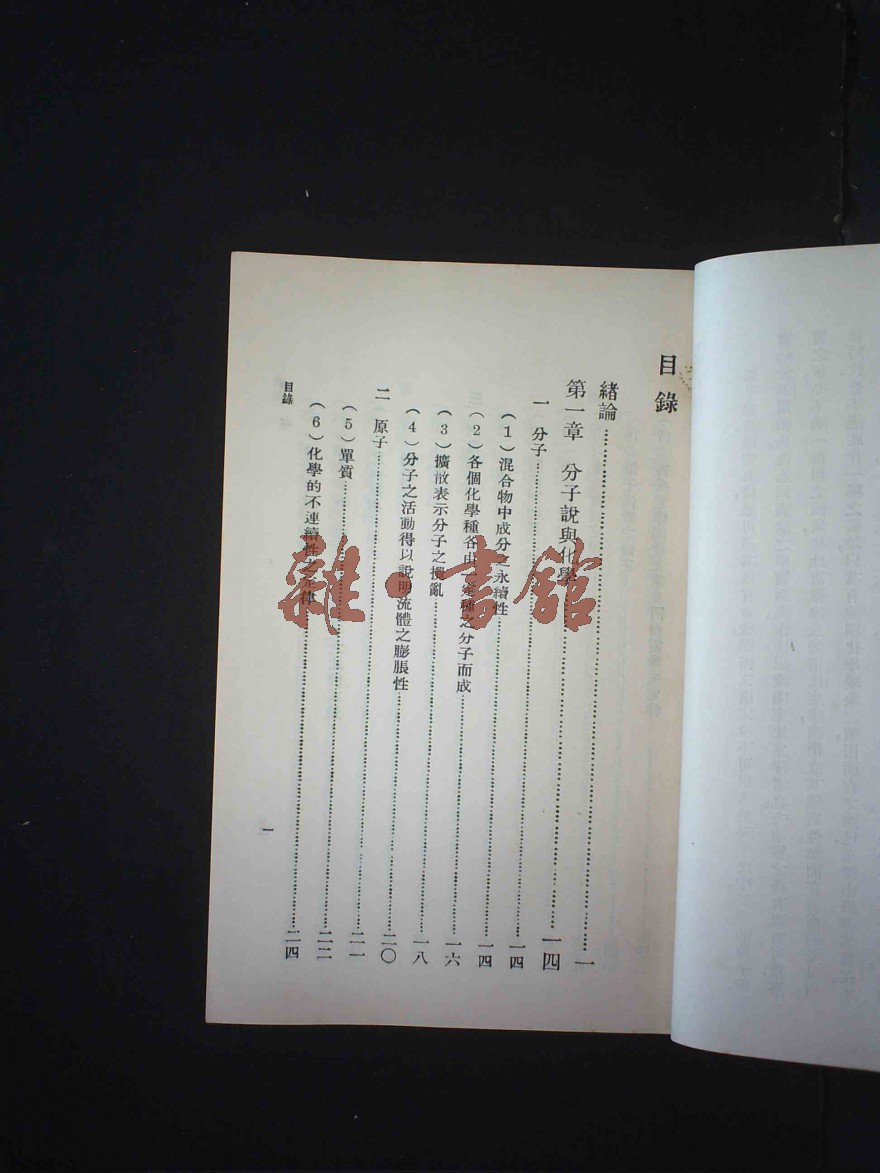 目錄
緒論……一
第一章 分子說與化學……一四
一 分子……一四
(1)混合物中成分之永續性……一四
(2)各個化學種各由一定種之分子而成……一六
(3)擴散表示分子之攪亂……一八
(4)分子之活動得以說明流體之膨脹性……二〇
二 原子……二一
(5)單質……二二
(6)化學的不連續性之定律……二四
目錄
一
雜·書館